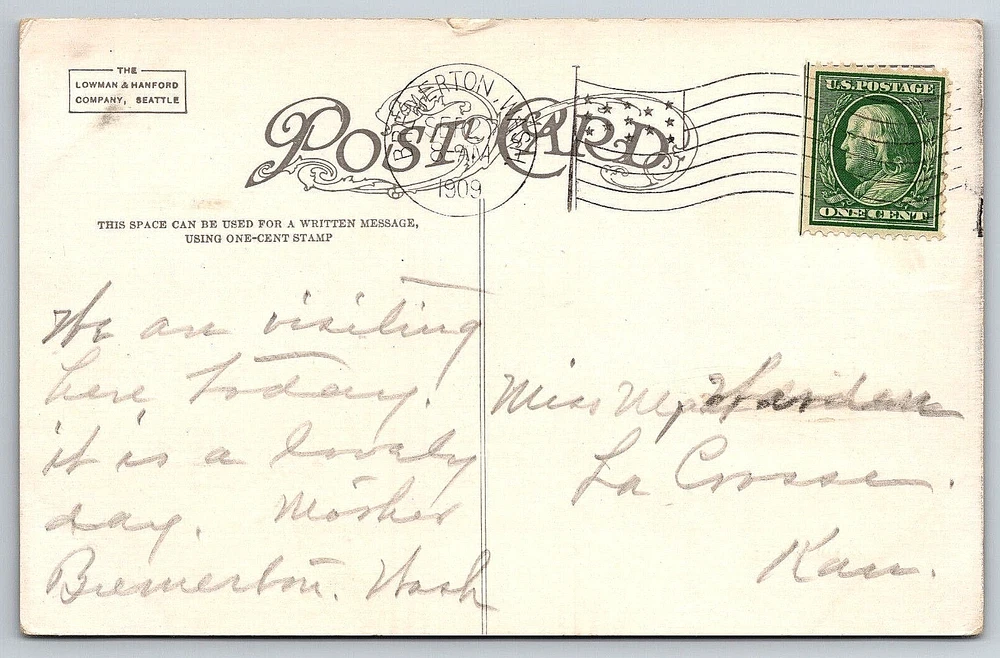 THE
LOWMAN & HANFORD
COMPANY, SEATTLE
POST CARD
BREMERTON, WASH.
1909
U.S. POSTAGE
ONE CENT
THIS SPACE CAN BE USED FOR A WRITTEN MESSAGE,
USING ONE-CENT STAMP
We are visiting
here today.
it is a lovely
day. Mother
Bremerton. Wash
Miss Harden
La Crosse.
Kan.